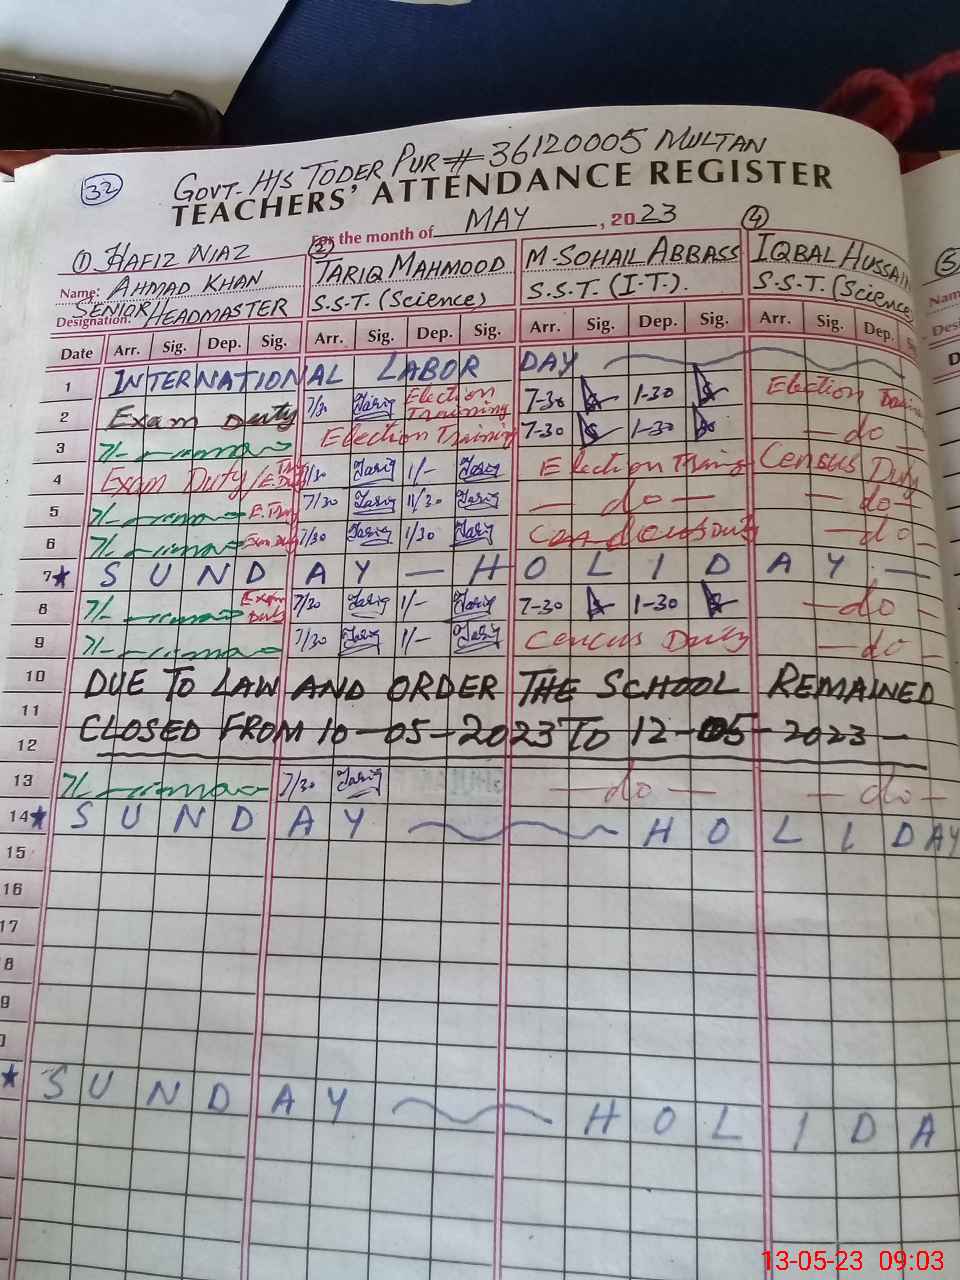 32
GOVT. H/S TODER PUR # 36120005 MULTAN
TEACHERS' ATTENDANCE REGISTER
For the month of MAY, 2023
① HAFIZ NIAZ ② ④ ⑤
Name: AHMAD KHAN TARIQ MAHMOOD M. SOHAIL ABBASS IQBAL HUSSAIN Nam
Designation: SENIOR HEADMASTER S.S.T. (Science) S.S.T. (I.T.). S.S.T. (Science Desi
Date Arr. Sig. Dep. Sig. Arr. Sig. Dep. Sig. Arr. Sig. Dep. Sig. Arr. Sig. Dep. S D
1 INTERNATIONAL LABOR DAY
2 Exam Duty 7/30 Tariq Election Training 7-30 1-30 Election
3 Election Training 7-30 1-30 — do —
4 Exam Duty / 7/30 Tariq 1/- Tariq Election Census Duty
5 7/30 Tariq 11/30 Tariq — do — — do —
6 7/30 Tariq 1/30 Tariq — do —
7★ SUNDAY — HOLIDAY —
8 Exam Duty 7/30 Tariq 1/- Tariq 7-30 1-30 — do
9 7/30 Tariq 1/- Tariq Cencus Duty — do
10 DUE TO LAW AND ORDER THE SCHOOL REMAINED
11
12 CLOSED FROM 10-05-2023 TO 12-05-2023 —
13 7/30 Tariq — do — — do —
14★ SUNDAY HOLIDAY
15
16
17
8
9
★ SUNDAY HOLIDA
13-05-23 09:03